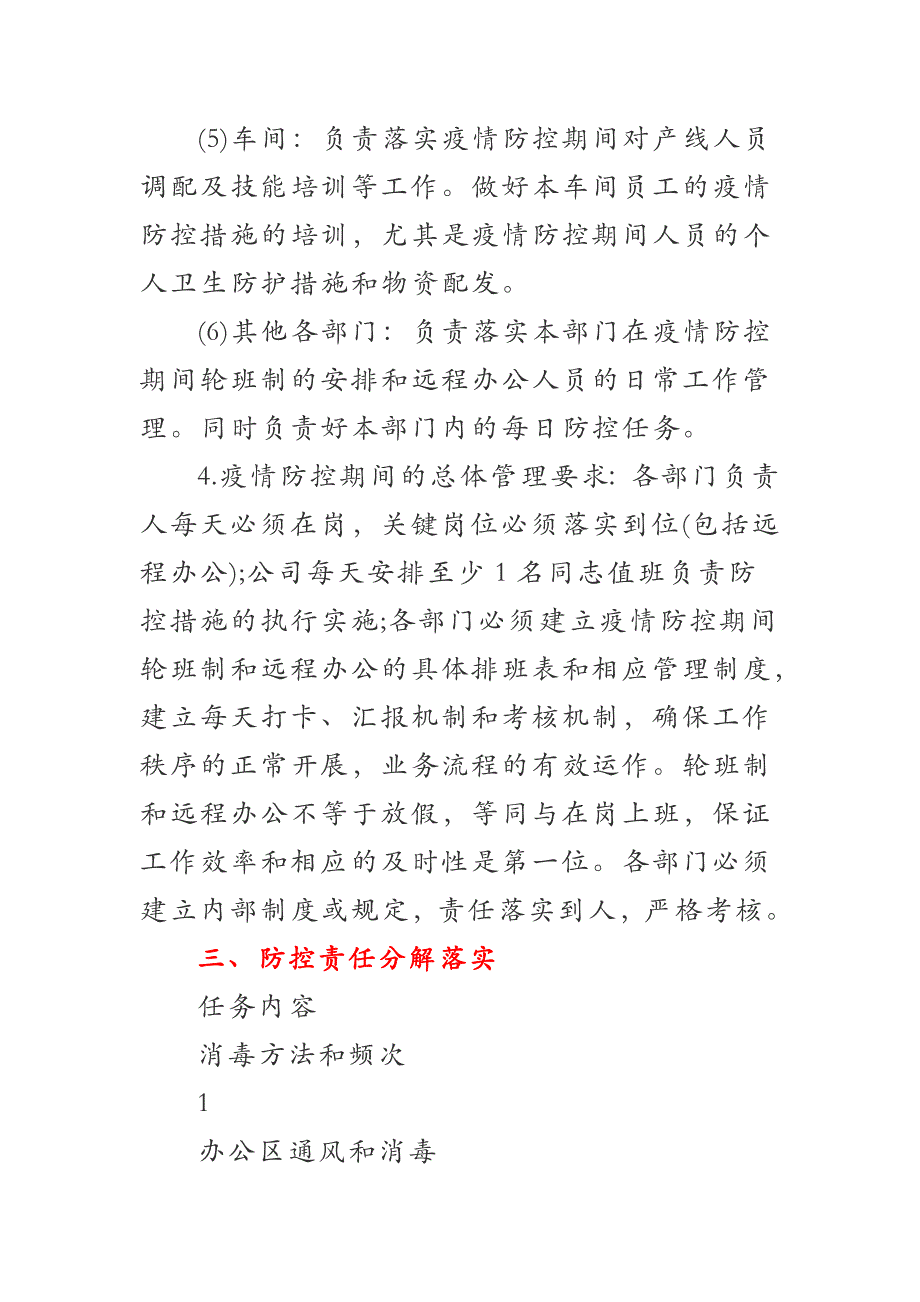 (5)车间：负责落实疫情防控期间对产线人员
调配及技能培训等工作。做好本车间员工的疫情
防控措施的培训，尤其是疫情防控期间人员的个
人卫生防护措施和物资配发。
(6)其他各部门：负责落实本部门在疫情防控
期间轮班制的安排和远程办公人员的日常工作管
理。同时负责好本部门内的每日防控任务。
4.疫情防控期间的总体管理要求：各部门负责
人每天必须在岗，关键岗位必须落实到位(包括远
程办公);公司每天安排至少1名同志值班负责防
控措施的执行实施;各部门必须建立疫情防控期间
轮班制和远程办公的具体排班表和相应管理制度，
建立每天打卡、汇报机制和考核机制，确保工作
秩序的正常开展，业务流程的有效运作。轮班制
和远程办公不等于放假，等同与在岗上班，保证
工作效率和相应的及时性是第一位。各部门必须
建立内部制度或规定，责任落实到人，严格考核。
三、防控责任分解落实
任务内容
消毒方法和频次
1
办公区通风和消毒